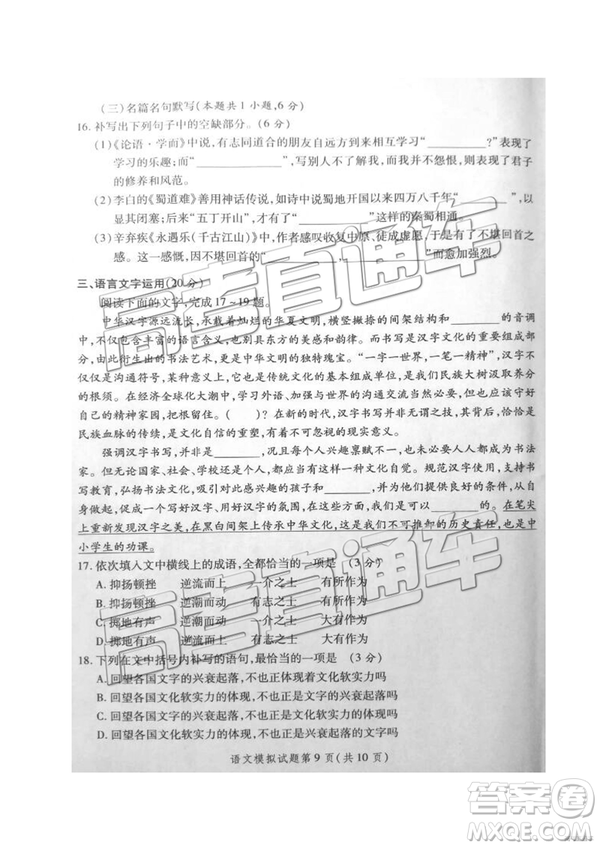 (三)名篇名句默写(本题共1小题,6分)
16.补写出下列句子中的空缺部分。(6分)
(1)《论语·学而》中说,有志同道合的朋友自远方到来相互学习“__________?”表现了
学习的乐趣;而“__________,__________”,写别人不了解我,我却不恼恨,表现了君子
的修养和风范。
(2)李白的《蜀道难》善用神话传说,如诗中说蜀地开国以来四万八千年“__________”,以
显其闭塞;后来“五丁开山”,才有了“__________”这样的秦蜀相通。
(3)辛弃疾《永遇乐(千古江山)》中,作者感叹收复中原、
之感慨。因为不堪回首的“__________,__________”而愈加强烈。
三、语言文字运用(20分)
阅读下面的文字,完成17~19题。
中华汉字源远流长,承载着灿烂的华夏文明,横竖撇捺的间架结构和__________的音调
中,不仅包含丰富的语言含义,也别具东方的美感和韵味。而书写是汉字文化的重要载体,
由此衍生出的书法艺术,更是中华文明的独特瑰宝。“一字一世界,一笔一精神”,汉字不
仅仅是沟通符号,某种意义上,它也是传统文化的基本组成单位,是民族大树汲取养分
的根须。在经济全球化大潮中,中国更应该__________,越是走向世界,越需要铸牢
自己的精神家园,把根留住。(　　)?在新的时代,汉字书写并非无谓之技,恰恰是
民族血脉的传续,是文化自信的重塑,有着重大而长远的现实意义。
强调汉字书写,并不是要每个人都要写得如何高妙,也未必要人人都能够成为书法
家。但至少,家庭、学校、社会应该给
书写教育,弘扬书法文化,吸引对此感兴趣的孩子和__________,
自身的发展空间,那么汉字书写在这个时代就仍然可以__________。在笔尖
上重新发现汉字之美,在黑白间架传承中华文化,这是我们不可推卸的历史责任,也是中
小学生的功课。
17.依次填入文中横线上的成语,全都恰当的一项是　(3分)
A.抑扬顿挫　逆流而上　有志之士　有所作为
B.抑扬顿挫　逆潮而动　有志之士　有所作为
C.掷地有声　逆潮而动　有心之士　大有作为
D.掷地有声　逆流而上　有心之士　大有作为
18.下列在文中括号内补写的语句,最恰当的一项是　(3分)
A.回望各国文字的兴衰起落,不也正体现着文化软实力的兴衰起落吗
B.回望各国文化软实力的体现,不也正体现着文字的兴衰起落吗
C.回望各国文字的兴衰起落,不也正是文化软实力的体现吗
D.回望各国文化软实力的体现,不也正是文字的兴衰起落吗
语文模拟试题第9页(共10页)
高考直通车
答案圈
MXQE.COM